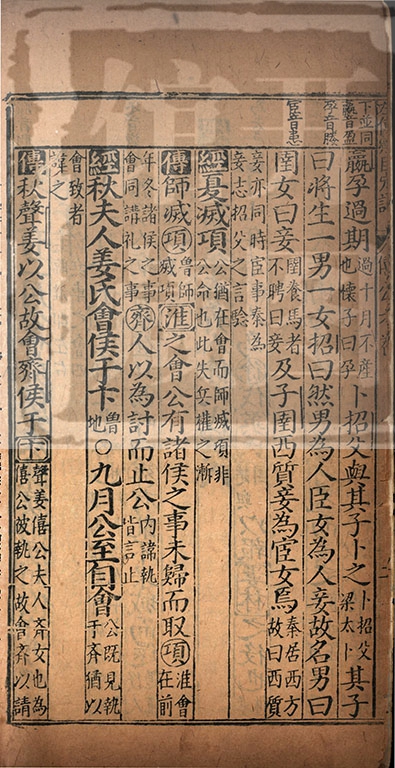 下並同
嬴音盈
孕音賸
宦音患
嬴孕過期過十月不產也懷子曰孕卜招父與其子卜之卜招父梁太卜其子
曰將生一男一女招曰然男為人臣女為人妾故名男曰
圉女曰妾圉養馬者不聘曰妾及子圉西質妾為宦女焉秦居西方故曰西質
妾亦同時宦事秦為妾志招父之言驗
經夏滅項公猶在會而師滅項非公命也此失兵權之漸
傳師滅項魯師滅項淮之會公有諸侯之事未歸而取項淮會在前
年冬諸侯之事會同講礼之事齊人以為討而止公內諱執皆言止
經秋夫人姜氏會侯于卞魯地○九月公至自會公既見執于齊猶以
會致者諱之
傳秋聲姜以公故會齊侯于卞聲姜僖公夫人齊女也為僖公被執之故會齊以請